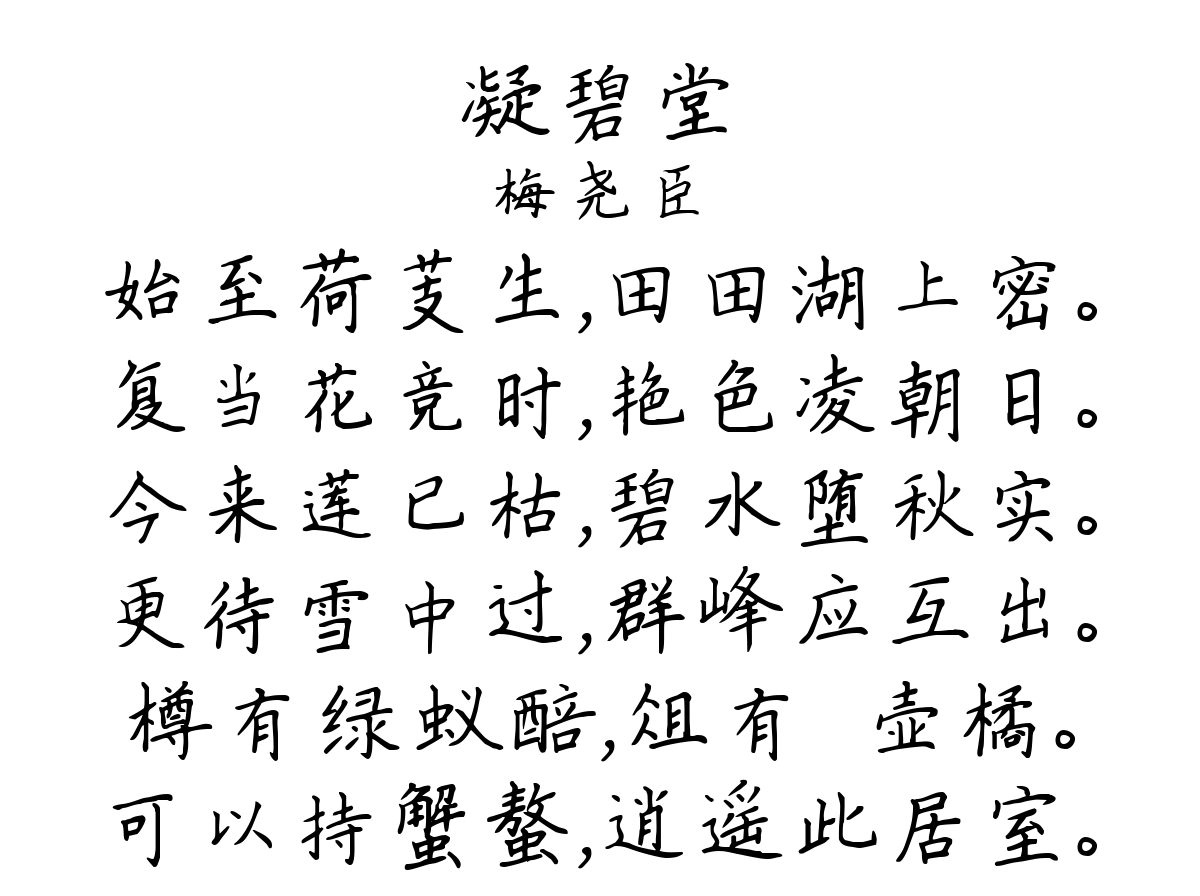 凝碧堂
梅尧臣
始至荷芰生,田田湖上密。
复当花竞时,艳色凌朝日。
今来莲已枯,碧水堕秋实。
更待雪中过,群峰应互出。
樽有绿蚁醅,俎有 壶橘。
可以持蟹螯,逍遥此居室。